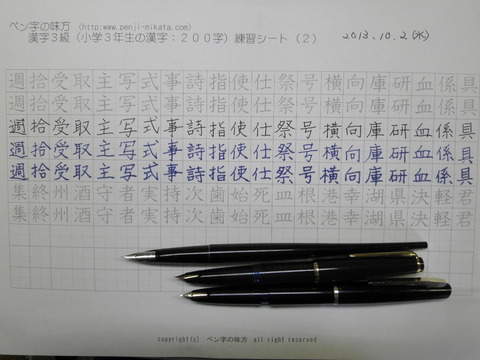 ペン字の味方 (http:www.penji-mikata.com)
漢字3級(小学3年生の漢字:200字)練習シート(2) 2013.10.2(水)
週拾受取主写式事詩指使仕祭号横向庫研血係具
週拾受取主写式事詩指使仕祭号横向庫研血係具
週拾受取主写式事詩指使仕祭号横向庫研血係具
週拾受取主写式事詩指使仕祭号横向庫研血係具
週拾受取主写式事詩指使仕祭号横向庫研血係具
集終州酒守者実持次歯始死皿根港幸湖県決軽君
集終州酒守者実持次歯始死皿根港幸湖県決軽君
copyright(c) ペン字の味方 all right reserved